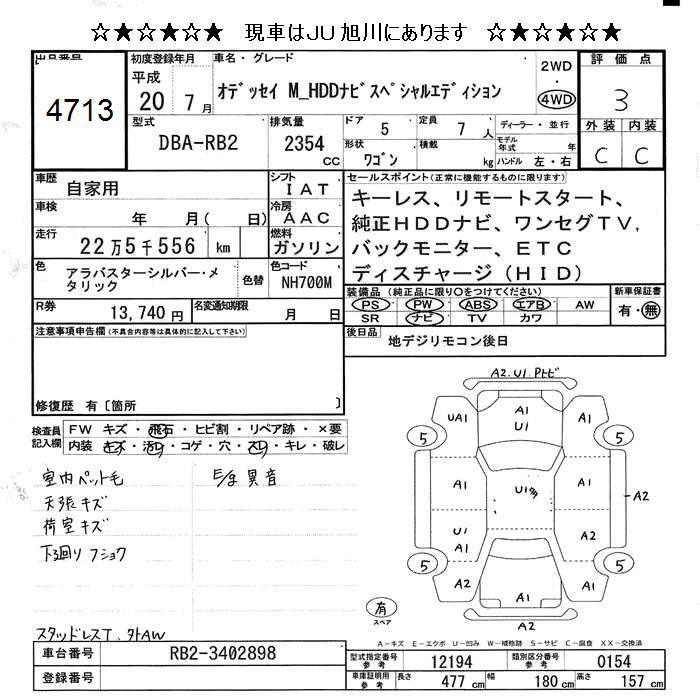 ☆★☆★☆★ 現車はJU旭川にあります ☆★☆★☆★
出品番号
4713
初度登録年月
平成
20 7月
車名・グレード
オデッセイ M_HDDナビスペシャルエディション
2WD
・
4WD
評価点
3
型式
DBA-RB2
排気量
2354
cc
ドア
5
定員
7
人
形状
ワゴン
積載
kg
ディーラー・並行
モデル年式
年
ハンドル 左・右
外装 内装
C C
車歴
自家用
シフト
IAT
車検
年 月( 日)
冷房
AAC
走行
22万5千556 km
燃料
ガソリン
色
アラバスターシルバー・メタリック
色替
色コード
NH700M
R券
13,740円
名変通知期限
月 日
セールスポイント(正常に機能するものに限ります)
キーレス、リモートスタート、
純正HDDナビ、ワンセグTV,
バックモニター、ETC
ディスチャージ(HID)
装備品(純正品に限り○をつけてください)
PS PW ABS エアB AW
SR ナビ TV カワ
新車保証書
有・無
後日品
地デジリモコン後日
注意事項申告欄(不具合内容等は具体的に記入して下さい)
修復歴 有〔箇所 〕
検査員記入欄
FW キズ・飛石・ヒビ割・リペア跡・×要
内装 キズ・汚レ・コゲ・穴・スレ・キレ・破レ
室内ペット毛
天張キズ
荷室キズ
下廻りフショク
異音
スタッドレスT、外AW
A2.U1.
UA1
A1
U1
A1
5
5
A1
A1
U1
A1
A2
A2
5
5
A2
A1
A2
A2
有
スペア
A-キズ E-エクボ U-凹み W-補修跡 S-サビ C-腐食 XX-交換済
車台番号
RB2-3402898
登録番号
型式指定番号
参考
12194
類別区分番号
参考
0154
車庫証明用
参考
長さ
477 cm
幅
180 cm
高さ
157 cm